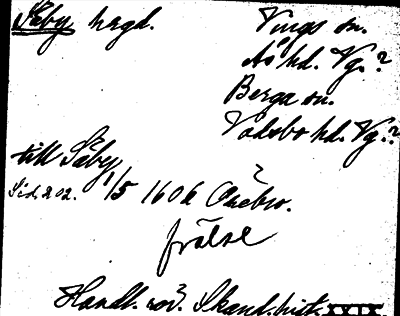 Säby hrgd.
Vings sn.
Ås hd. Vg.?
Berga sn.
Vadsbo hd. Vg.?
till Säby
Sid. 202. 1/5 1606 Örebro.
?
frälse
Handl. rör. Skand. hist. XXIX